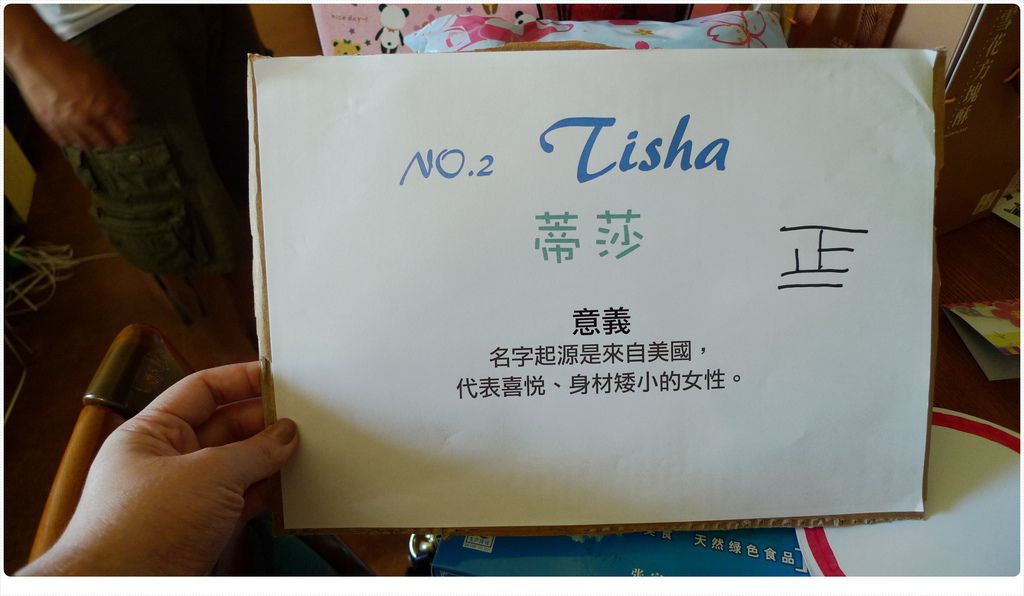 nice day!
NO.2 Tisha
蒂莎
正
意義
名字起源是來自美國，
代表喜悅、身材矮小的女性。
雪花方塊酥
天然绿色食品